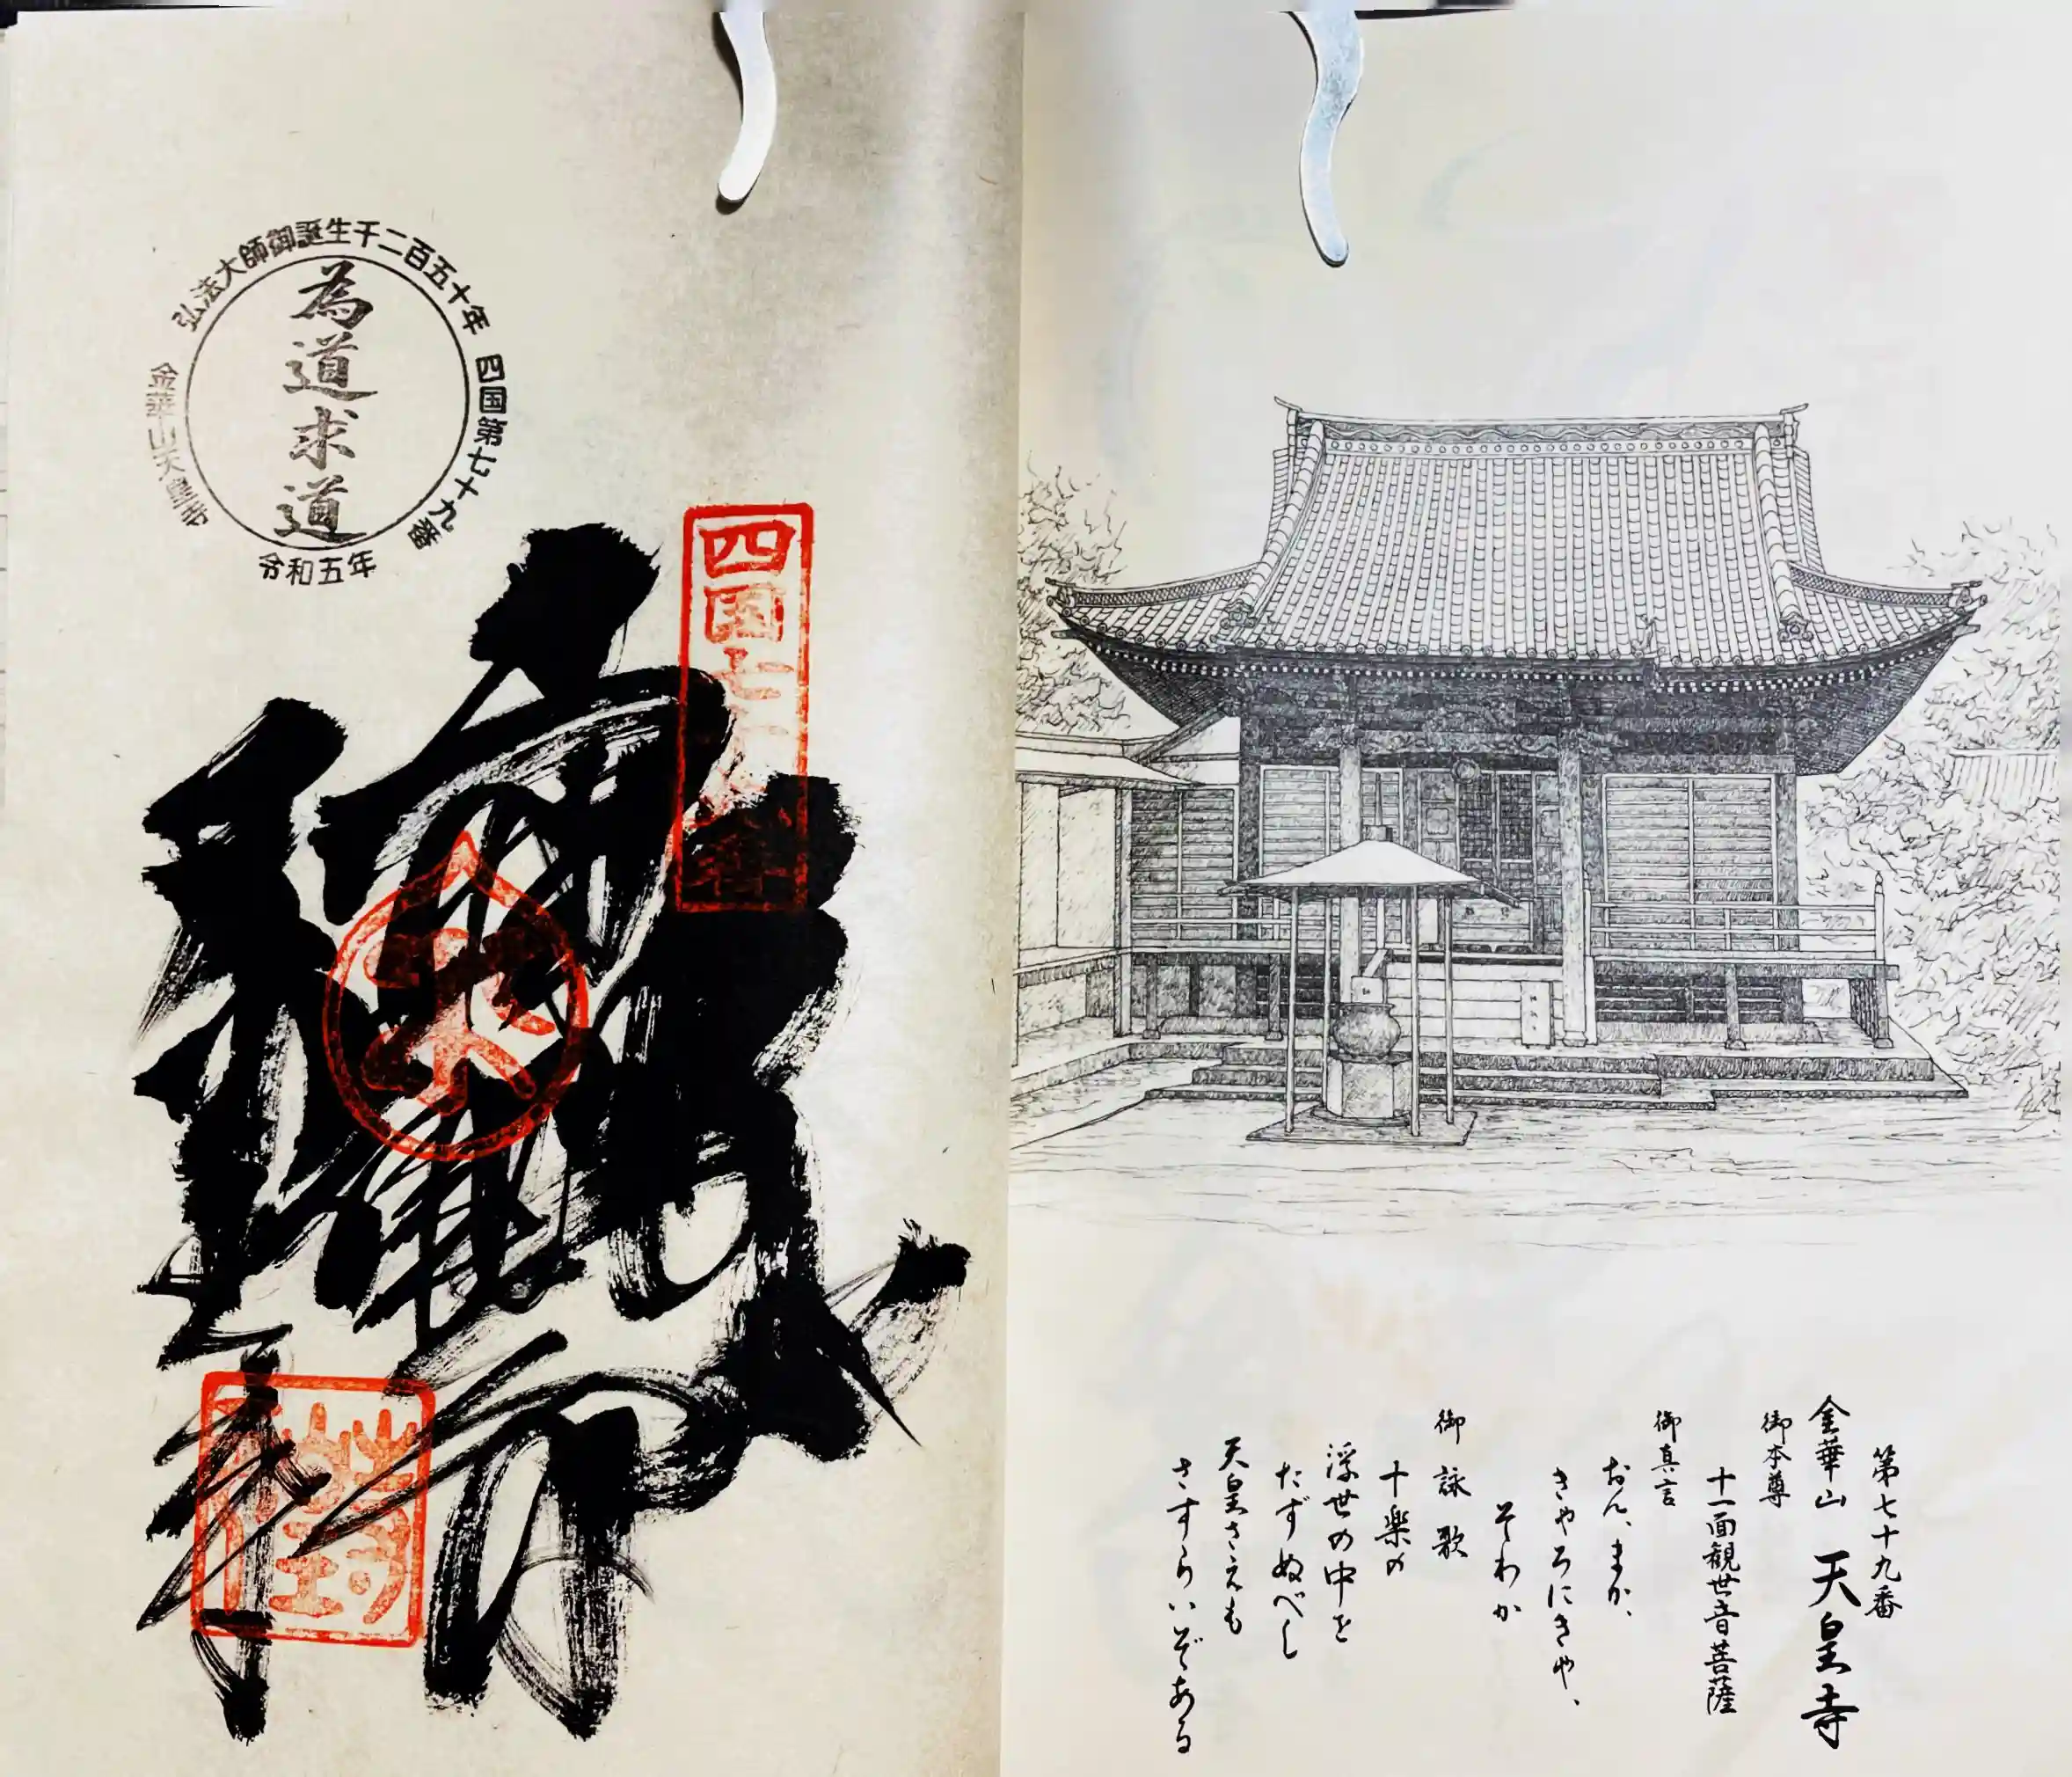 第七十九番
金華山 天皇寺
御本尊
十一面観世音菩薩
御真言
おん、まか、
きやろにきや、
そわか
御詠歌
十楽の
浮世の中を
たずぬべし
天皇さえも
さすらいぞある
弘法大師御誕生千二百五十年
四国第七十九番
金華山天皇寺
令和五年
為道求道
四国七十九番